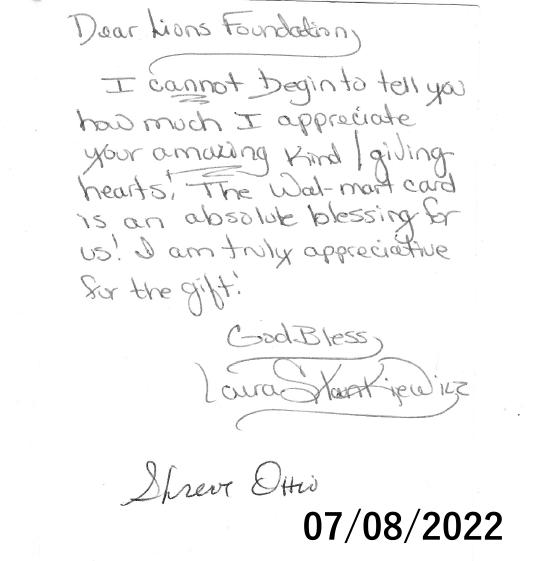 Dear Lions Foundation,
I cannot begin to tell you
how much I appreciate
your amazing kind / giving
hearts! The Wal-mart card
is an absolute blessing for
us! I am truly appreciative
for the gift!
God Bless,
Laura Stankiewicz
Shreve Ohio
07/08/2022